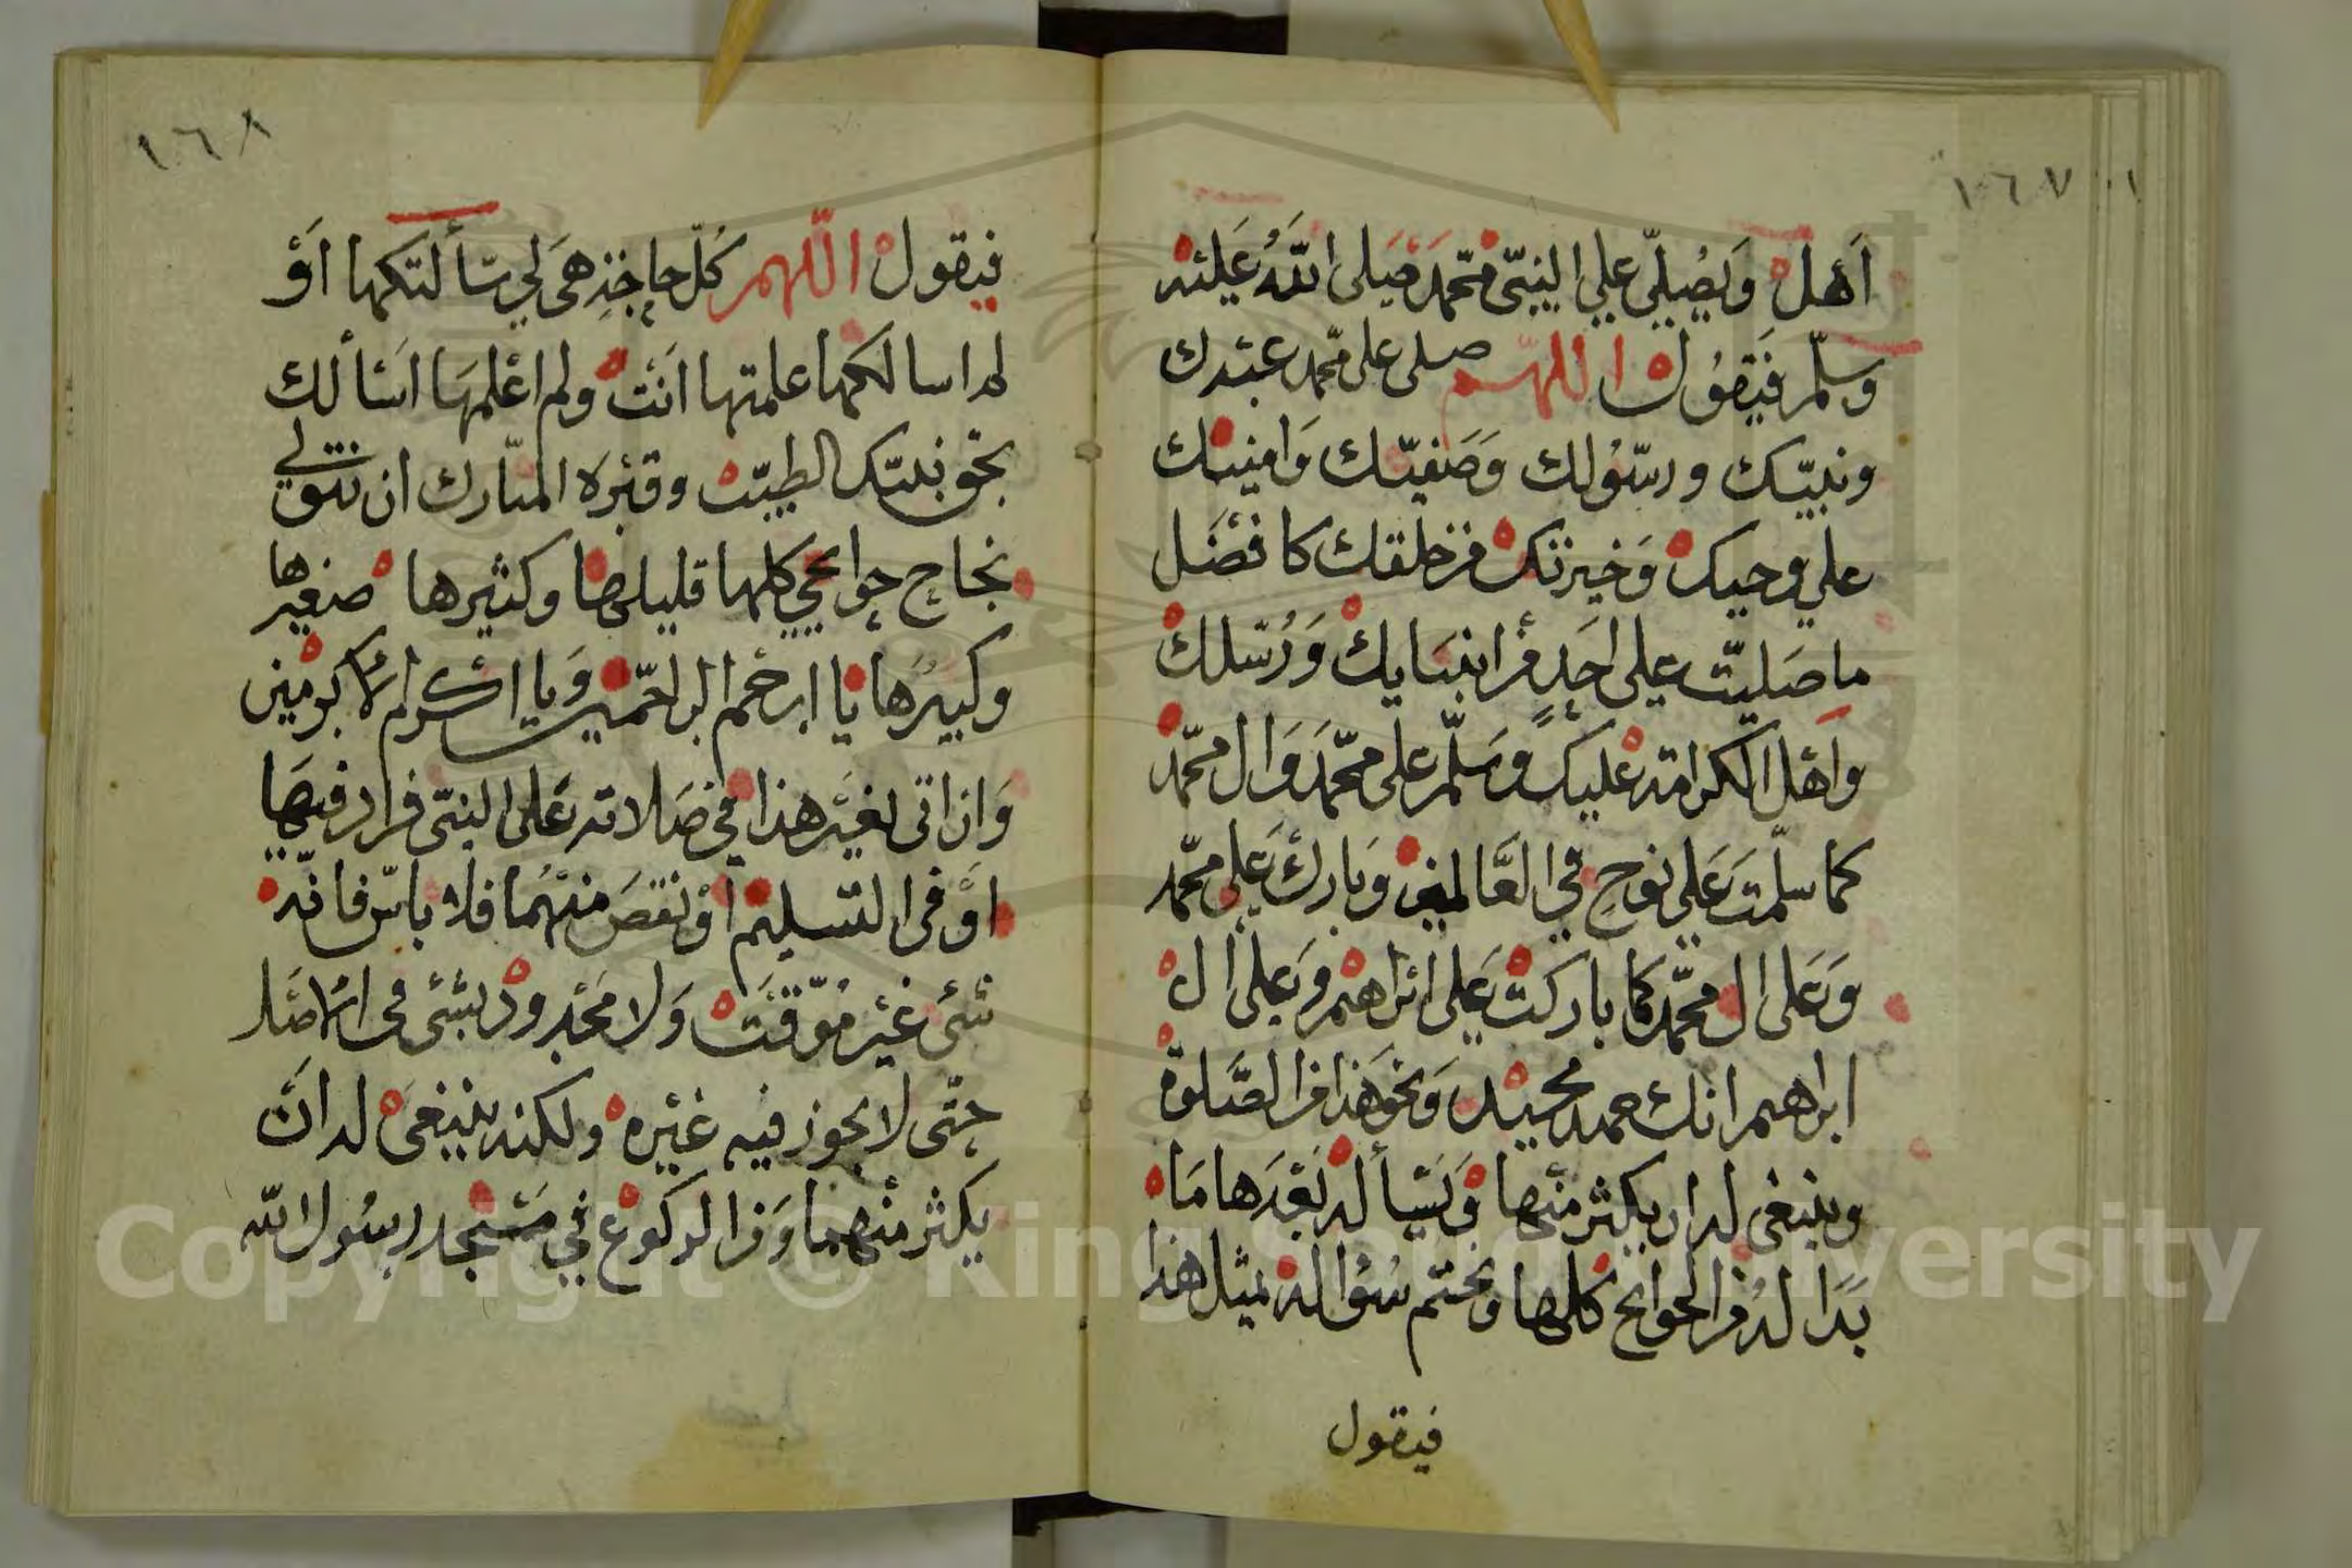 ١٦٧
أهل ويصلي علي النبي محمد صلى الله عليه
وسلم فيقول اللهم صلى على محمد عبدك
ونبيك ورسولك وصفيك وامينك
علي وحيك وخيرتك من خلقك كا فضل
ما صليت على احد من انبيايك ورسلك
واهل الكرامة عليك وسلم على محمد وال محمد
كما سلمت على نوح في العالمين وبارك على محمد
وعلى ال محمد كما باركت على ابراهيم وعلى ال
ابراهيم انك حميد مجيد ونحو هذا من الصلوة
وينبغى له ان يكثر منها ويسأله بعدها ما
بدا له من الحوايج كلها ويختم سؤاله بمثل هذا
فيقول
١٦٨
فيقول اللهم كل حاجة هي لي سألتكها أو
لم اسالكها علمتها انت ولم اعلمها اسألك
بحق نبيك الطيب وقبره المبارك ان تتولي
نجاح حوايجي كلها قليلها وكثيرها صغيرها
وكبيرها يا ارحم الراحمين ويا اكرم الاكرمين
وان اتى بغير هذا في صلاته على النبي فزاد فيها
او في التسليم او نقص منهما فلا باس فانه
شئ غير موقت ولا محدود بشئ في الاصل
حتى لا يجوز فيه غيره ولكنه ينبغي له ان
يكثر منهما ومن الركوع في مسجد رسول الله
Copyright © King Saud University